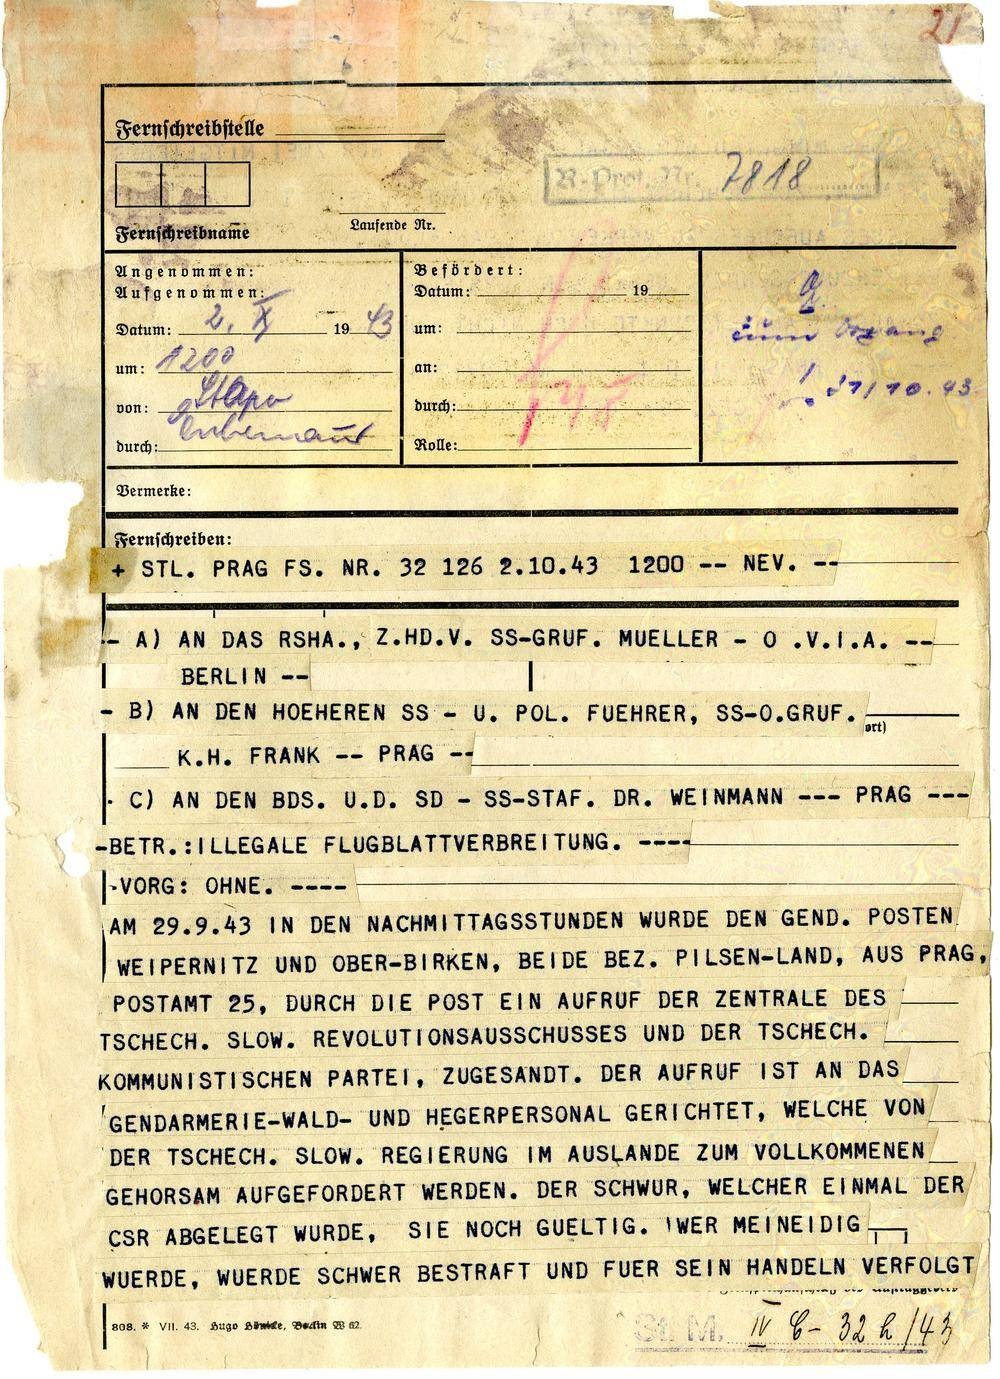 21
Fernschreibstelle
R-Prot. Nr. 7818
Fernschreibname
Laufende Nr.
Angenommen:
Aufgenommen:
Datum: 2. X 19 43
um: 1200
von: Stapo
durch:
Befördert:
Datum: 19
um:
an:
durch:
Rolle:
zum Vorgang
21/10.43.
Vermerke:
Fernschreiben:
+ STL. PRAG FS. NR. 32 126 2.10.43 1200 -- NEV. --
- A) AN DAS RSHA., Z.HD.V. SS-GRUF. MUELLER - O .V.I.A. --
BERLIN --
- B) AN DEN HOEHEREN SS - U. POL. FUEHRER, SS-O.GRUF.
ort)
K.H. FRANK -- PRAG --
- C) AN DEN BDS. U.D. SD - SS-STAF. DR. WEINMANN --- PRAG ---
-BETR.:ILLEGALE FLUGBLATTVERBREITUNG. ----
-VORG: OHNE. ----
AM 29.9.43 IN DEN NACHMITTAGSSTUNDEN WURDE DEN GEND. POSTEN
WEIPERNITZ UND OBER-BIRKEN, BEIDE BEZ. PILSEN-LAND, AUS PRAG,
POSTAMT 25, DURCH DIE POST EIN AUFRUF DER ZENTRALE DES
TSCHECH. SLOW. REVOLUTIONSAUSSCHUSSES UND DER TSCHECH.
KOMMUNISTISCHEN PARTEI, ZUGESANDT. DER AUFRUF IST AN DAS
GENDARMERIE-WALD- UND HEGERPERSONAL GERICHTET, WELCHE VON
DER TSCHECH. SLOW. REGIERUNG IM AUSLANDE ZUM VOLLKOMMENEN
GEHORSAM AUFGEFORDERT WERDEN. DER SCHWUR, WELCHER EINMAL DER
CSR ABGELEGT WURDE, SIE NOCH GUELTIG. WER MEINEIDIG
WUERDE, WUERDE SCHWER BESTRAFT UND FUER SEIN HANDELN VERFOLGT
808. * VII. 43. Hugo Berlin W 62.
St. M. IV C - 32 h /43